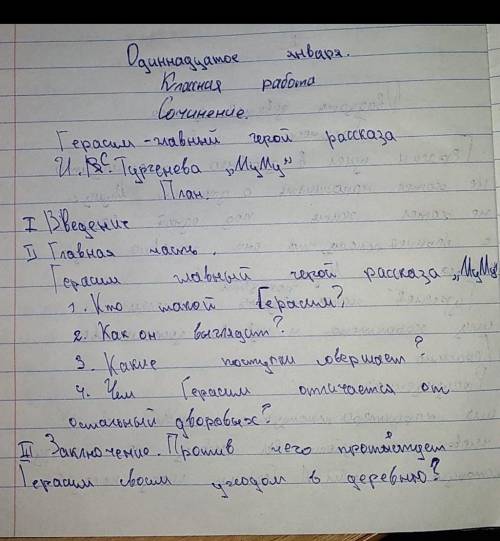 Одиннадцатое января.
Классная работа
Сочинение.
Герасим - главный герой рассказа
И. С. Тургенева „МуМу"
План.
I Введение
II Главная часть.
Герасим главный герой рассказа „МуМу"
1. Кто такой Герасим?
2. Как он выглядит?
3. Какие поступки совершает?
4. Чем Герасим отличается от
остальный дворовых?
III Заключение. Против чего протестует
Герасим своим уходом в деревню?